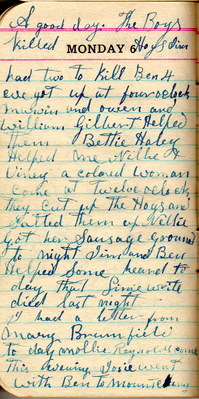 A good day. The Boys
killed Hogs Jim
MONDAY 6
had two to Kill Ben 4
we got up at four oclock
Marvin and owen and
William Gilbert Helped
them Bettie Haley
Helped me Nillie &
Viney a colored woman
come at twelve oclock
they cut up the Hogs and
Salted them up Nillie
got her Sausage Ground
to night Jim and Ben
Helped Some heard to
day that Simie
died last night
I had a letter from
Mary Brumfield
to day mollie come
This evening Josie went
with Ben to